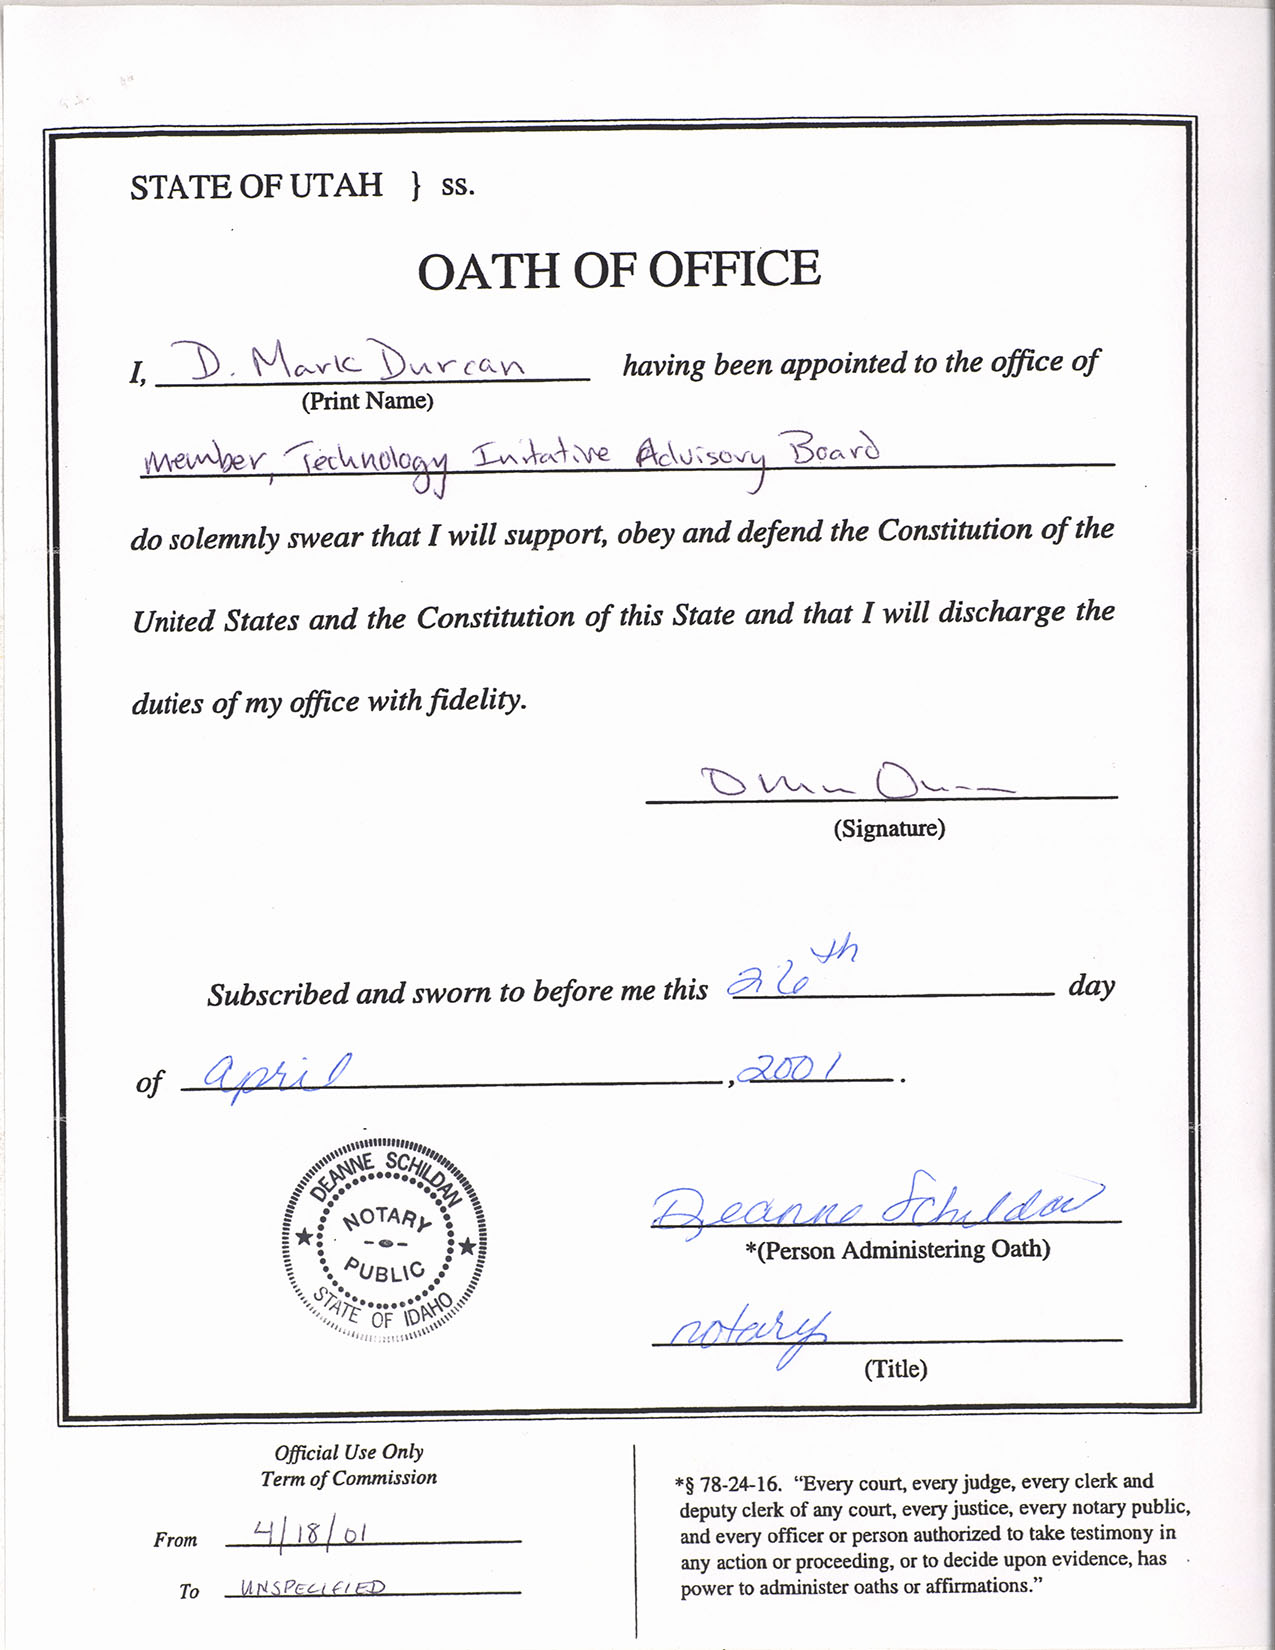 STATE OF UTAH } ss.
OATH OF OFFICE
I, D. Mark Durcan having been appointed to the office of
(Print Name)
Member, Technology Initative Advisory Board
do solemnly swear that I will support, obey and defend the Constitution of the
United States and the Constitution of this State and that I will discharge the
duties of my office with fidelity.
(Signature)
Subscribed and sworn to before me this 26th day
of April, 2001.
DEANNE SCHILDAN
NOTARY
PUBLIC
STATE OF IDAHO
Deanne Schildan
*(Person Administering Oath)
notary
(Title)
Official Use Only
Term of Commission
From 4/18/01
To UNSPECIFIED
*§ 78-24-16. “Every court, every judge, every clerk and
deputy clerk of any court, every justice, every notary public,
and every officer or person authorized to take testimony in
any action or proceeding, or to decide upon evidence, has
power to administer oaths or affirmations.”